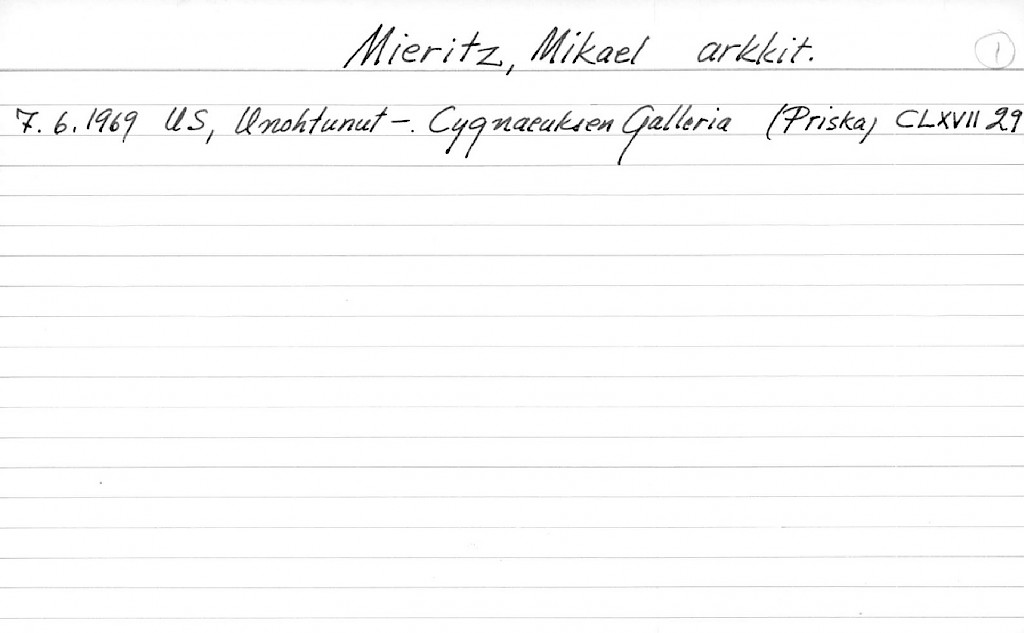 Mieritz, Mikael arkkit. 1
7.6.1969 US, Unohtunut –. Cygnaeuksen Galleria (Priska) CLXVII 29